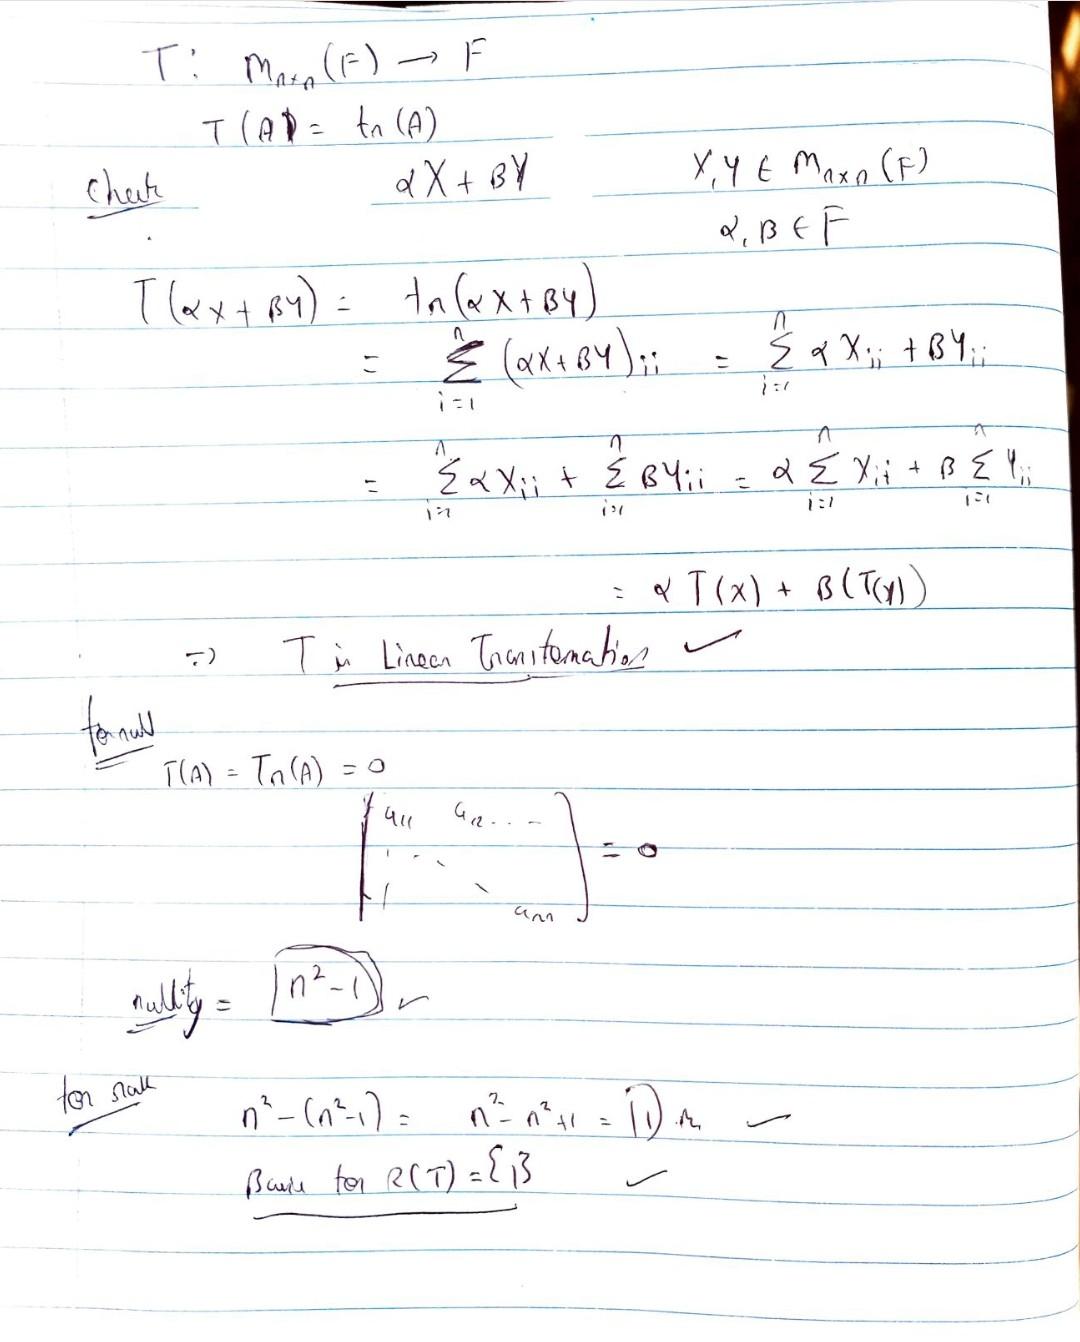 T: Mnxn(F) → F
T(A) = tr(A)
Check αX + βY X,Y ∈ Mnxn(F)
α, β ∈ F
T(αX + βY) = tr(αX + βY)
= n∑i=1 (αX + βY)ii = n∑i=1 αXii + βYii
= n∑i=1 αXii + n∑i=1 βYii = α n∑i=1 Xii + β n∑i=1 Yii
= α T(X) + β(T(Y))
⇒ T is Linear Transformation ✓
for null
T(A) = Tr(A) = 0
[a11 a12 ... –
⋮ ⋱
ann] = 0
nullity = n²-1 ✓
for rank
n² – (n²-1) = n² – n² + 1 = 1 ✓
Basis for R(T) = {1} ✓